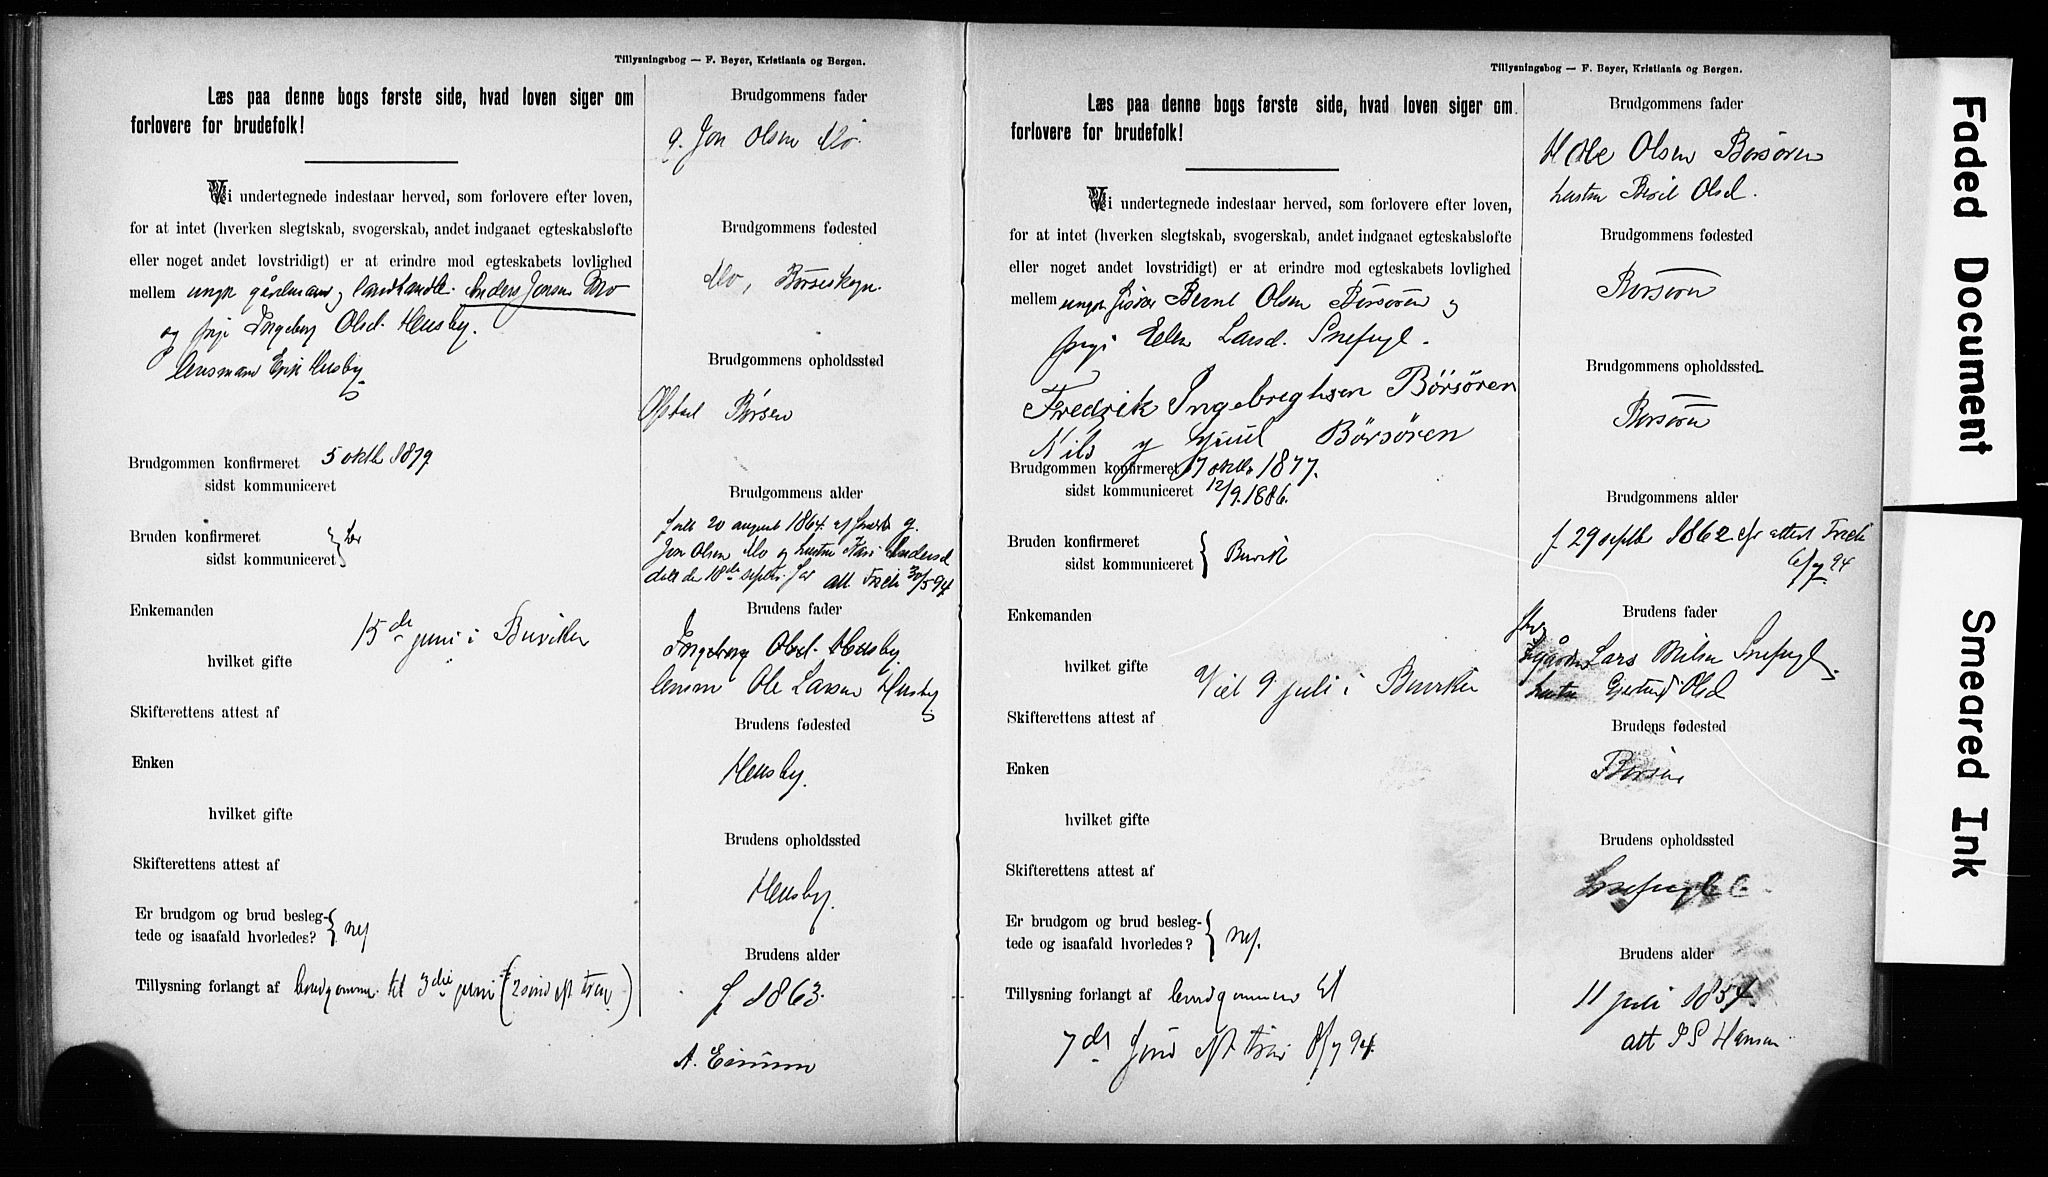 Tillysningsbog — F. Beyer, Kristiania og Bergen.
Læs paa denne bogs første side, hvad loven siger om
forlovere for brudefolk!
Vi undertegnede indestaar herved, som forlovere efter loven,
for at intet (hverken slegtskab, svogerskab, andet indgaaet egteskabsløfte
eller noget andet lovstridigt) er at erindre mod egteskabets lovlighed
mellem ungk gårdmand og landhandler Anders Jonsen Mo
og pige Ingeborg Olsd. Heusby.
lensmand Erik Heusby
Brudgommen konfirmeret 5 oktb 1879
sidst kommuniceret
Bruden konfirmeret
sidst kommuniceret
Enkemanden
15de juni i Buviken
hvilket gifte
Skifterettens attest af
Enken
hvilket gifte
Skifterettens attest af
Er brudgom og brud besleg-
tede og isaafald hvorledes? nej
Tillysning forlangt af brudgommen til 3die juni (2 sønd eft tref)
Brudgommens fader
g. Jon Olsen Mo.
Brudgommens fødested
Mo, Børseskogn.
Brudgommens opholdssted
Børsen
Brudgommens alder
født 20 august 1864 af
Jon Olsen Mo og hustru Kari Andersd
døbt den 18de septbr. att 30/5 94
Brudens fader
Ingeborg Olsd. Heusby
lensm Ole Larsen Heusby
Brudens fødested
Heusby.
Brudens opholdssted
Heusby.
Brudens alder
f 1863.
Tillysningsbog — F. Beyer, Kristiania og Bergen.
Læs paa denne bogs første side, hvad loven siger om
forlovere for brudefolk!
Vi undertegnede indestaar herved, som forlovere efter loven,
for at intet (hverken slegtskab, svogerskab, andet indgaaet egteskabsløfte
eller noget andet lovstridigt) er at erindre mod egteskabets lovlighed
mellem ungk Bernt Olsen Børsøren og
pige Ellen Larsd. Snefugl.
Fredrik Ingebreghsen Børsøren
Nils Juul Børsøren
Brudgommen konfirmeret 7 oktbr 1877.
sidst kommuniceret 12/9.1886.
Bruden konfirmeret
sidst kommuniceret Buvik
Enkemanden
hvilket gifte
Viet 9 juli i Buviken
Skifterettens attest af
Enken
hvilket gifte
Skifterettens attest af
Er brudgom og brud besleg-
tede og isaafald hvorledes? nej.
Tillysning forlangt af brudgommen til
7de sønd eft tref 8/7 94.
Brudgommens fader
Ole Olsen Børsøren
hustru Olsd.
Brudgommens fødested
Børsøren
Brudgommens opholdssted
Børsøren
Brudgommens alder
f 29 septb 1862 efr attest
6/7 94
Brudens fader
Lars Snefugl
hustru Gjertrud Olsd
Brudens fødested
Brudens opholdssted
Snefugl
Brudens alder
11 juli 1857
att Hansen
Faded Document
Smeared Ink